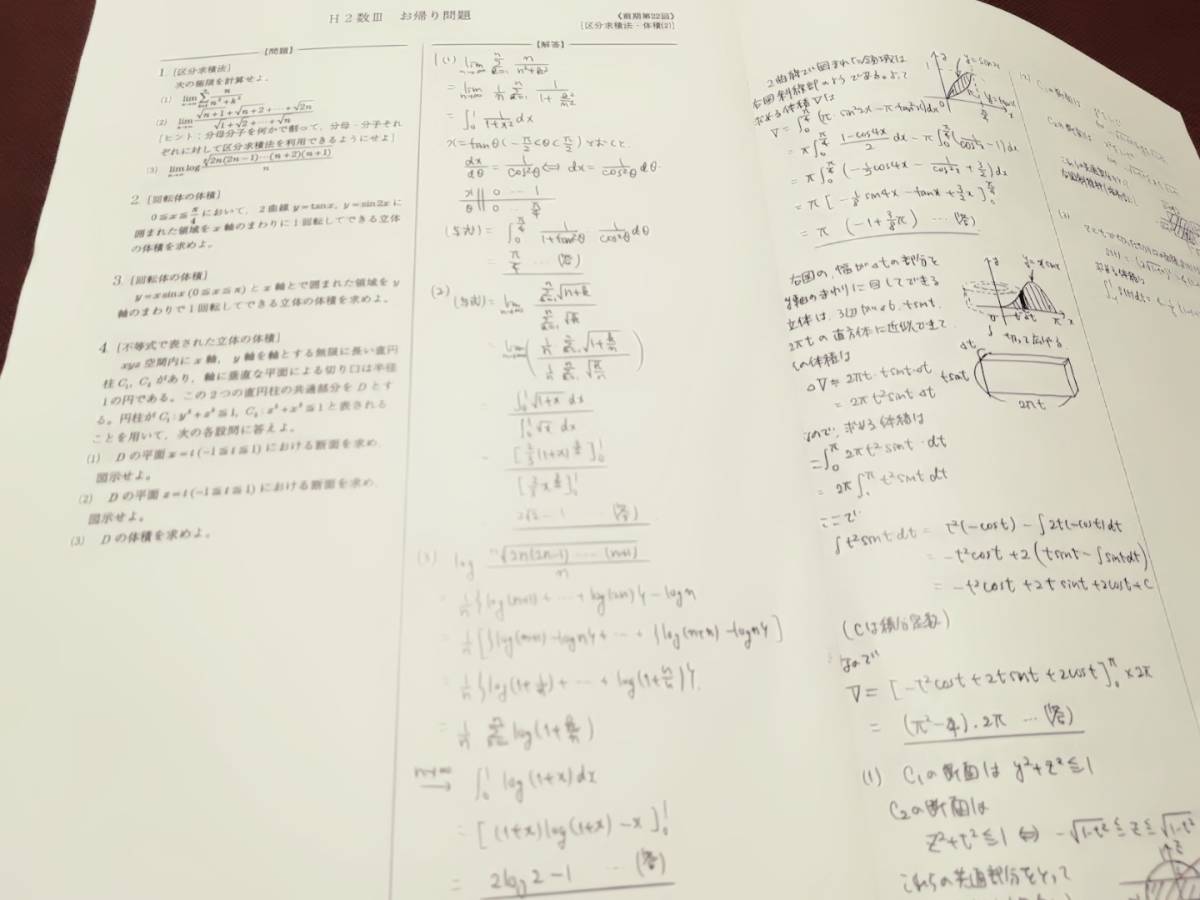 H2数Ⅲ お帰り問題
《前期第22回》
[区分求積法・体積(2)]
【問題】
1 [区分求積法]
次の極限を計算せよ。
(1) lim n→∞ Σ k=1 n n/(n²+k²)
(2) lim n→∞ (√n+1+√n+2+…+√2n)/(√1+√2+…+√n)
[ヒント：分母分子を何かで割って，分母・分子それ
ぞれに対して区分求積法を利用できるようにせよ]
(3) lim n→∞ log ⁿ√2n(2n-1)…(n+2)(n+1)/n
2 [回転体の体積]
0≦x≦π/4において，2曲線y=tanx, y=sin2xに
囲まれた領域をx軸のまわりに1回転してできる立体
の体積を求めよ。
3 [回転体の体積]
y=xsinx(0≦x≦π)とx軸とで囲まれた領域をy
軸のまわりで1回転してできる立体の体積を求めよ。
4 [不等式で表された立体の体積]
xyz空間内にx軸，y軸を軸とする無限に長い直円
柱C₁, C₂があり，軸に垂直な平面による切り口は半径
1の円である。この2つの直円柱の共通部分をDとす
る。円柱がC₁：y²+z²≦1, C₂：z²+x²≦1と表される
ことを用いて，次の各設問に答えよ。
(1) Dの平面x=t(-1≦t≦1)における断面を求め，
図示せよ。
(2) Dの平面z=t(-1≦t≦1)における断面を求め，
図示せよ。
(3) Dの体積を求めよ。
【解答】
1(1) lim n→∞ Σ k=1 n n/(n²+k²)
= lim n→∞ 1/n Σ k=1 n 1/(1+k²/n²)
= ∫₀¹ 1/(1+x²) dx
x=tanθ(-π/2<θ<π/2)とおくと、
dx/dθ = 1/cos²θ ⇔ dx = 1/cos²θ dθ
x 0 … 1
θ 0 … π/4
(与式) = ∫₀^(π/4) 1/(1+tan²θ) 1/cos²θ dθ
= π/4 … (答)
(2) (与式) = lim n→∞ Σ k=1 n √n+k / Σ k=1 n √k
= lim n→∞ (1/n Σ k=1 n √1+k/n / 1/n Σ k=1 n √k/n)
= ∫₀¹ √1+x dx / ∫₀¹ √x dx
= [2/3 (1+x)^(3/2)]₀¹ / [2/3 x^(3/2)]₀¹
= 2√2-1 … (答)
(3) log ⁿ√2n(2n-1)……(n+1) / n
= 1/n {log(n+1)+…+log(2n)} - log n
= 1/n [{log(n+1)-logn}+…+{log(n+n)-logn}]
= 1/n {log(1+1/n)+…+log(1+n/n)}
= 1/n Σ k=1 n log(1+k/n)
n→∞ → ∫₀¹ log(1+x)dx
= [(1+x)log(1+x)-x]₀¹
= 2log2-1 … (答)
2曲線で囲まれた領域は
右図斜線部のようである。よって
求める体積Vは
V = ∫₀^(π/4) (π・sin²2x-πtan²x)dx
= π∫₀^(π/4) (1-cos4x)/2 dx - π∫₀^(π/4) (1/cos²x -1)dx
= π∫₀^(π/4) (-1/2 cos4x - 1/cos²x + 3/2)dx
= π[-1/8 sin4x - tanx + 3/2 x]₀^(π/4)
= π(-1+3/8 π) … (答)
右図の、幅がΔtの部分を
y軸のまわりに回してできる
立体は、3辺がΔt, tsint,
2πtの直方体に近似できて
その体積は
ΔV ≒ 2πt・tsint・Δt
= 2πt²sint Δt
なので、求める体積は
=∫₀^π 2πt²sint・dt
= 2π∫₀^π t²sint dt
ここで
∫t²sint dt = t²(-cost) - ∫2t(-cost)dt
= -t²cost+2(tsint-∫sintdt)
= -t²cost+2tsint+2cost+C
(Cは積分定数)
なので
V= [-t²cost+2tsint+2cost]₀^π ×2π
= (π²-4)・2π … (答)
(1) C₁の断面は y²+z²≦1
C₂の断面は
z²+t²≦1 ⇔ -√1-t² ≦ z ≦ √1-t²
これらの共通部分をとって
y=xsinx
Δt
tsint
2πt